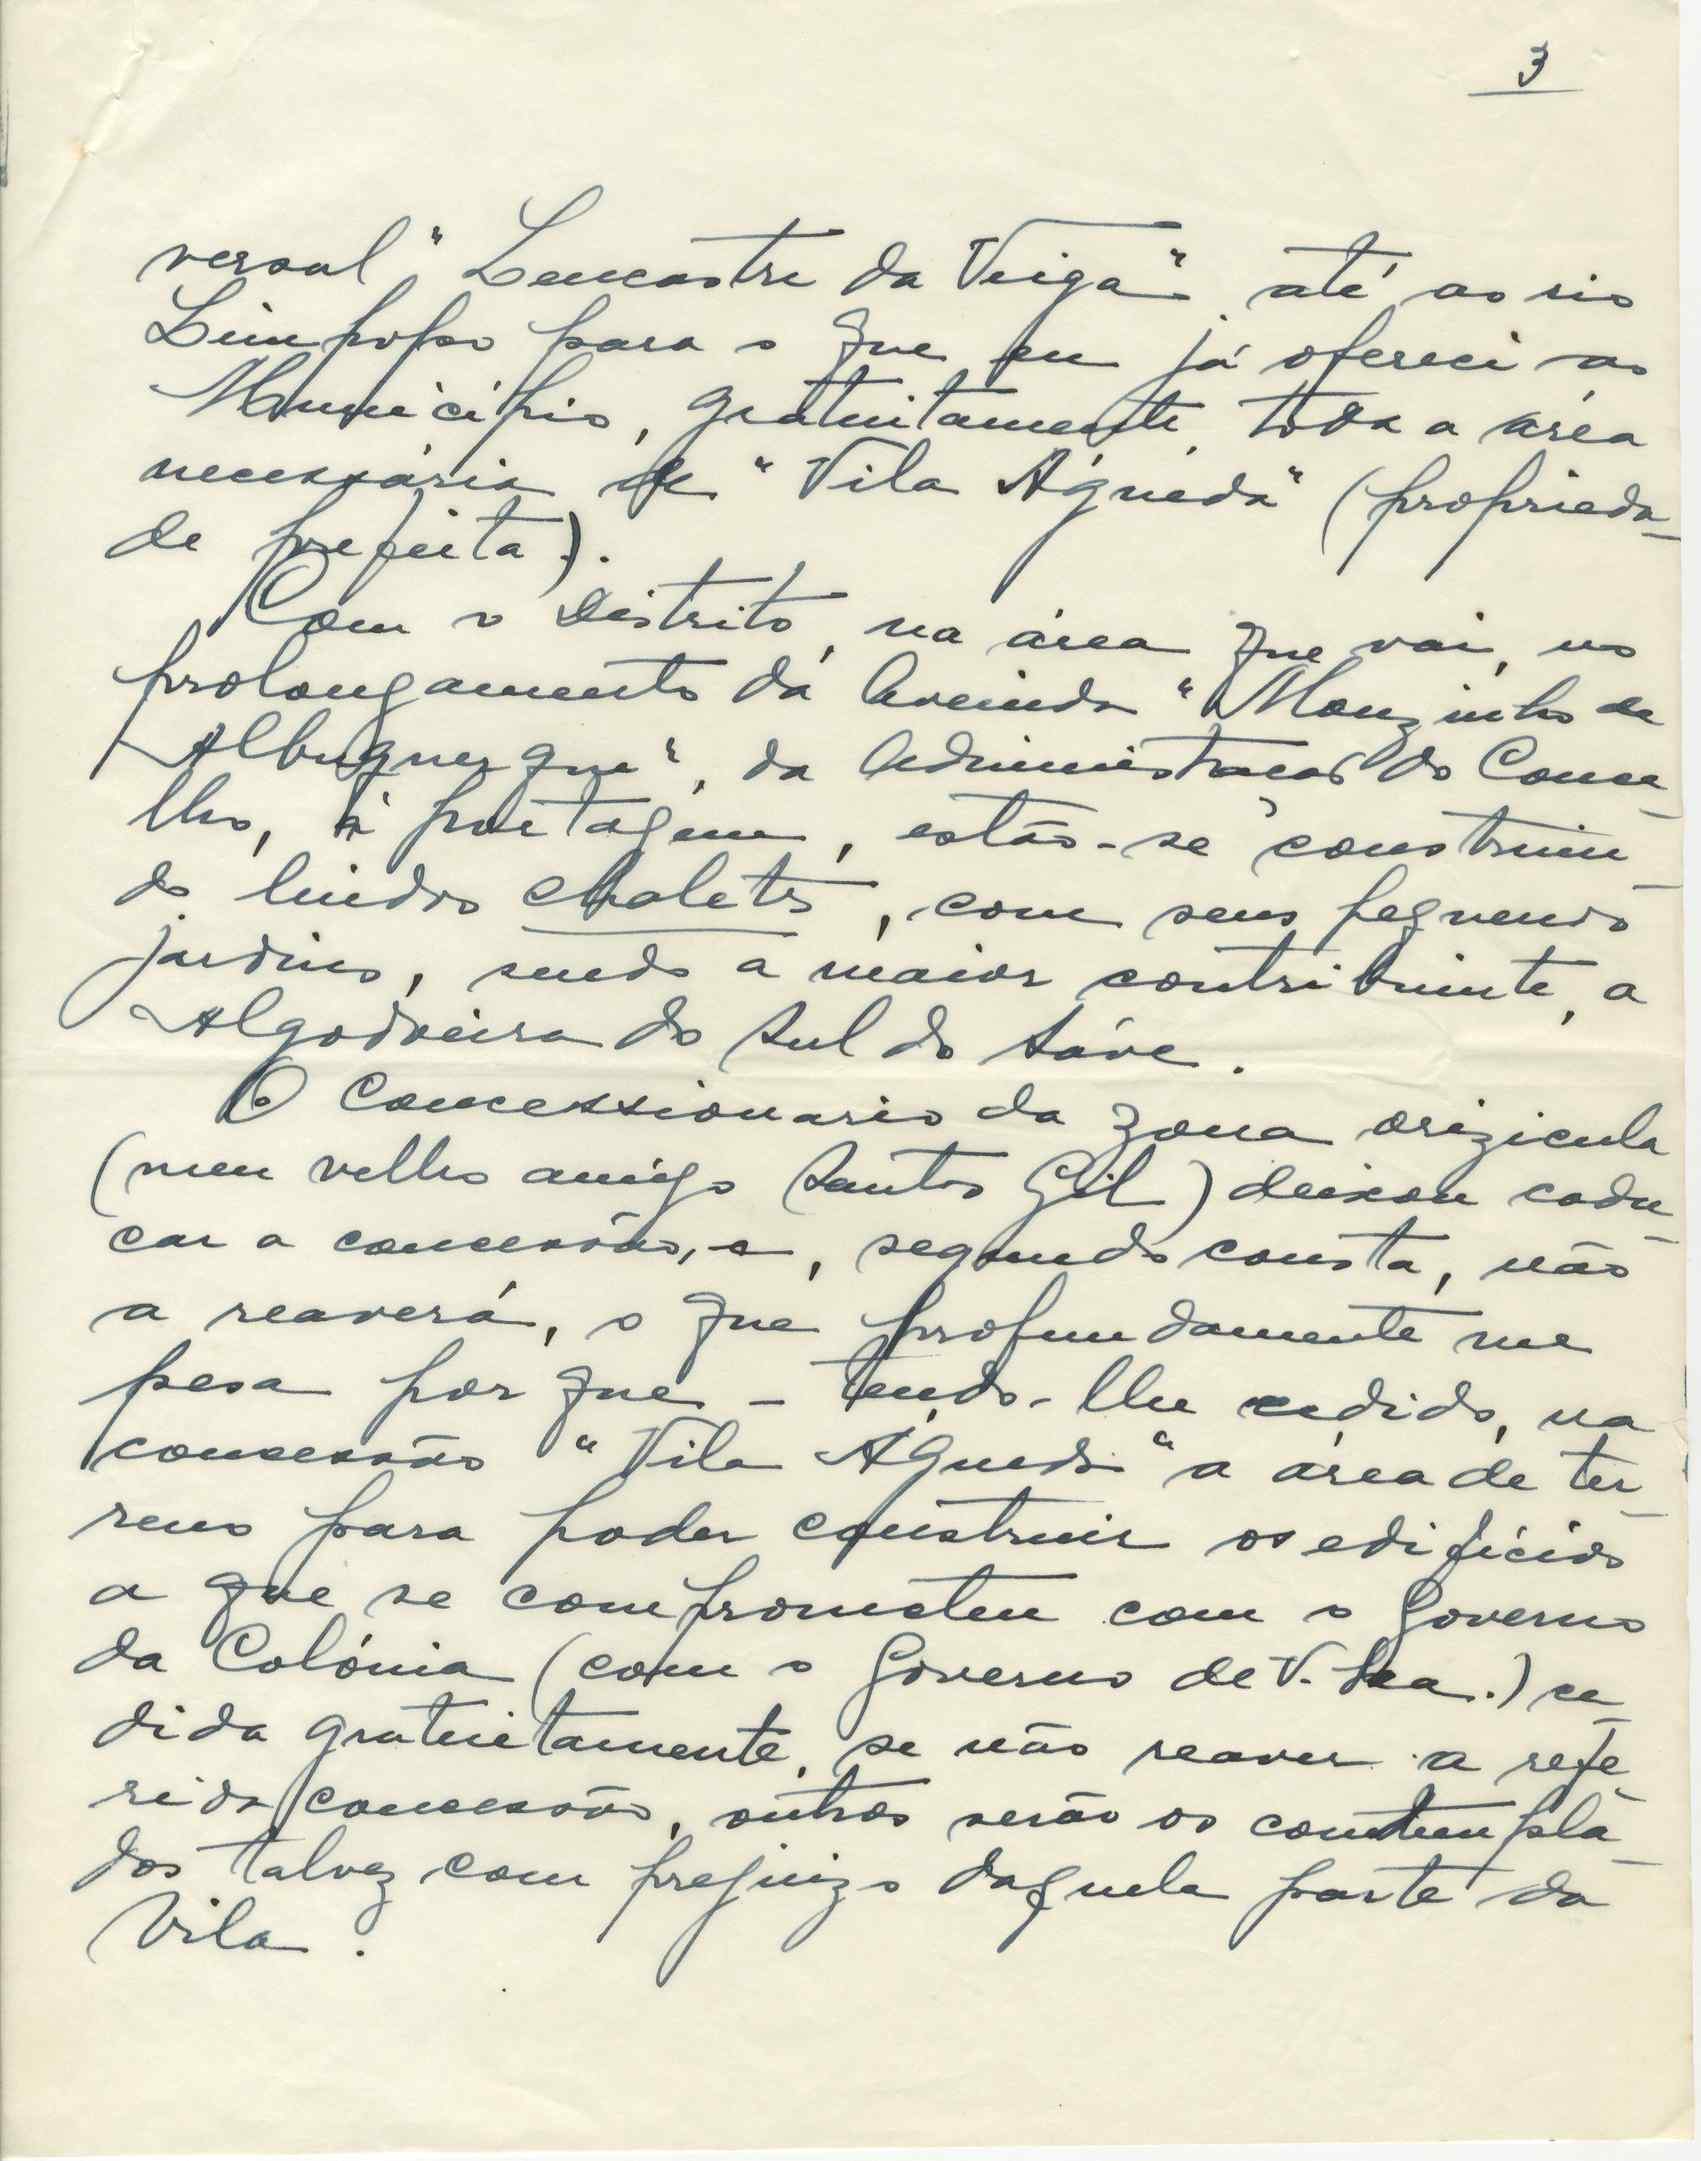 3
versal "Lencastre da Veiga" até ao rio
Limpopo para o que eu já ofereci ao
Município, gratuitamente, toda a área
necessária de "Vila Águeda" (proprieda-
de perfeita).
Com o Distrito, na área que vai, no
prolongamento da Avenida "Mouzinho de
Albuquerque", da Administração do Conce-
lho, à portagem, estão-se construin-
do lindos chalets, com seus pequenos
jardins, sendo a maior contribuinte, a
Algodoeira do Sul do Sáve.
O Concessionario da zona orizicula
(meu velho amigo Santos Gil) deixou cadu-
car a concessão, e, segundo consta, não
a reaverá, o que profundamente me
pesa por que - tendo-lhe cedido, na
concessão "Vila Águeda" a área de ter-
reno para poder construir os edifícios
a que se comprometeu com o Governo
da Colónia (com o Governo de V. Exa.) ce-
dida gratuitamente, se não reaver a refe-
rida concessão, outros serão os contempla-
dos talvez com prejuizo daquela parte da
Vila.